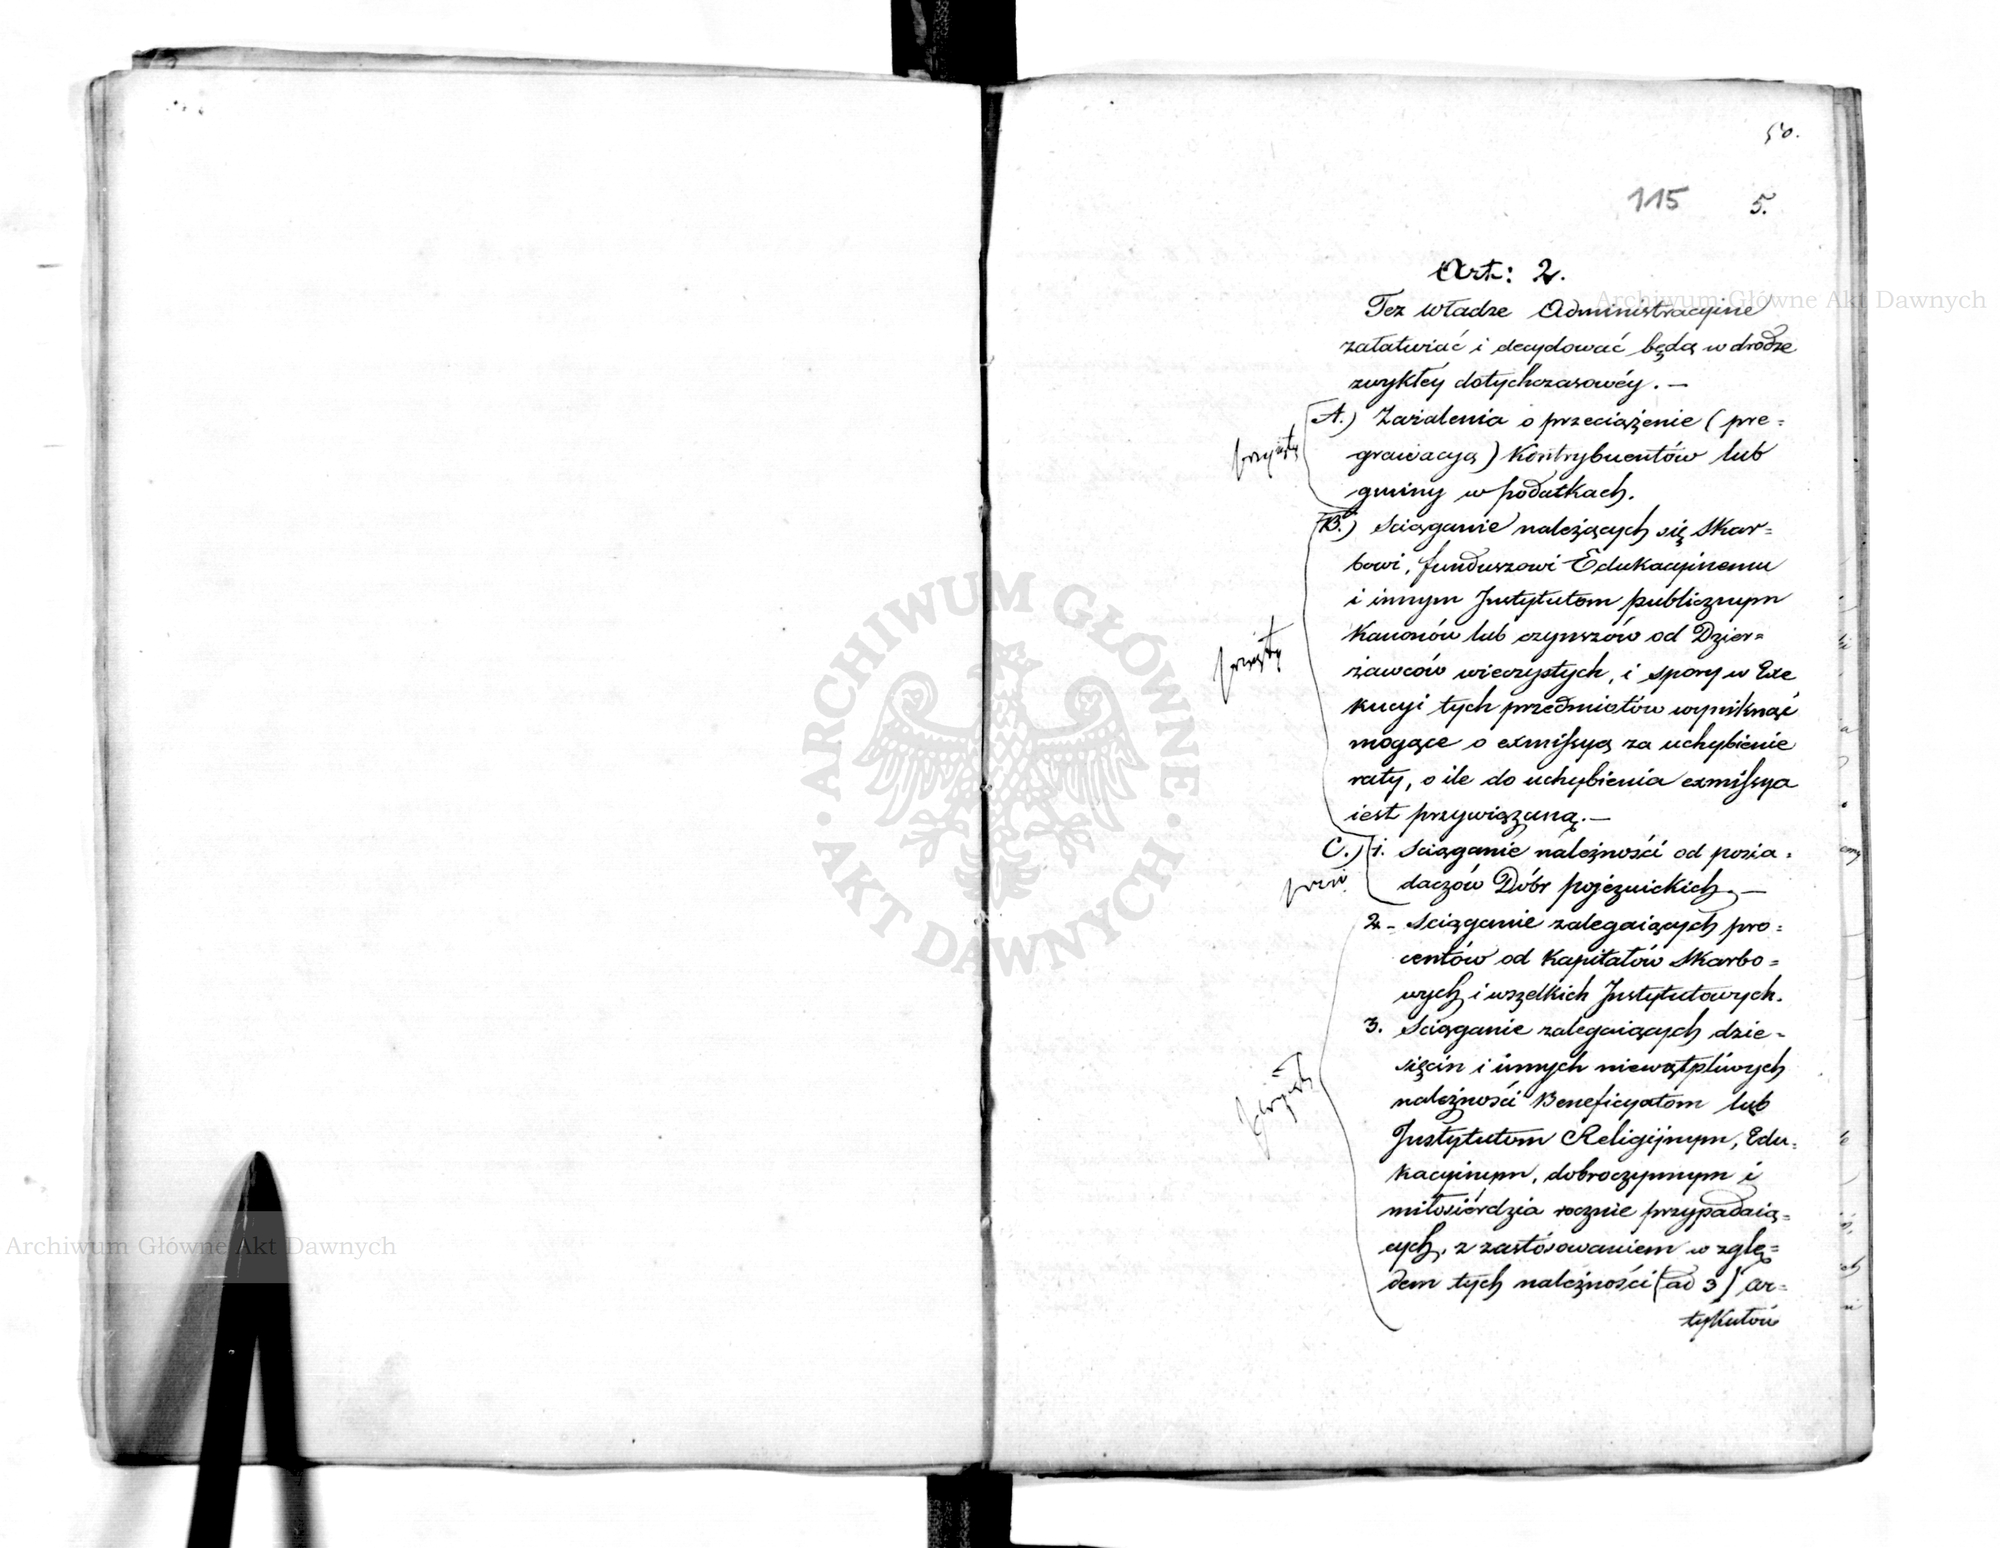 50.
115 5.
Art: 2.
Też władze Administracyine
załatwiać i decydować będą w drodze
zwykłey dotychczasowéy. —
A.) Zażalenia o przeciążenie (pre=
grawacyą) Kontrybuentów lub
gminy w podatkach.
przyięty
B.) Sciąganie należących się Skar=
bowi, funduszowi Edukacyinemu
i innym Instytutom publicznym
Kanonów lub czynszów od Dzier=
żawców wieczystych, i spory w Exe
kucyi tych przedmiotów wyniknąć
mogące o exmissyą za uchybienie
raty, o ile do uchybienia exmissya
iest przywiązaną. —
C.) 1. Sciąganie należności od posia=
daczów Dóbr pojeznickich. —
2. Sciąganie zalegaiących pro=
centów od Kapitałów Skarbo=
wych i wszelkich Instytutowych.
3. Sciąganie zalegaiących dzie=
sięcin i innych niewątpliwych
należności Beneficyatom lub
Instytutom Religijnym, Edu=
kacyinym, dobroczynnym i
miłosierdzia rocznie przypadaią=
cych, z zastósowaniem w zglę=
dem tych należności (ad 3) ar=
tykułów
Archiwum Główne Akt Dawnych
Archiwum Główne Akt Dawnych
ARCHIWUM GŁÓWNE
AKT DAWNYCH